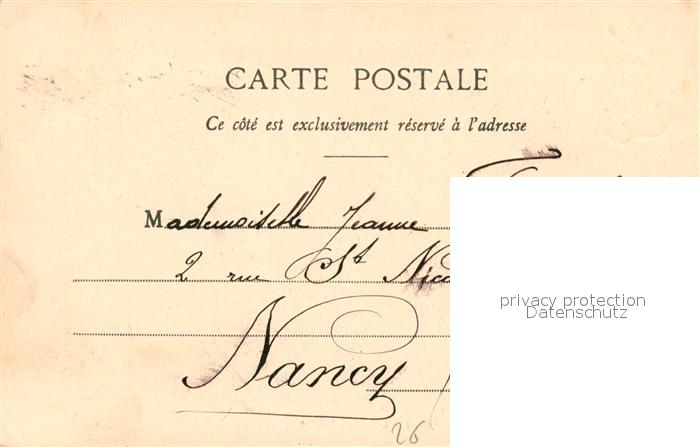 CARTE POSTALE
Ce côté est exclusivement réservé à l'adresse
Mademoiselle Jeanne
2 rue St Nico
privacy protection
Datenschutz
Nancy
26